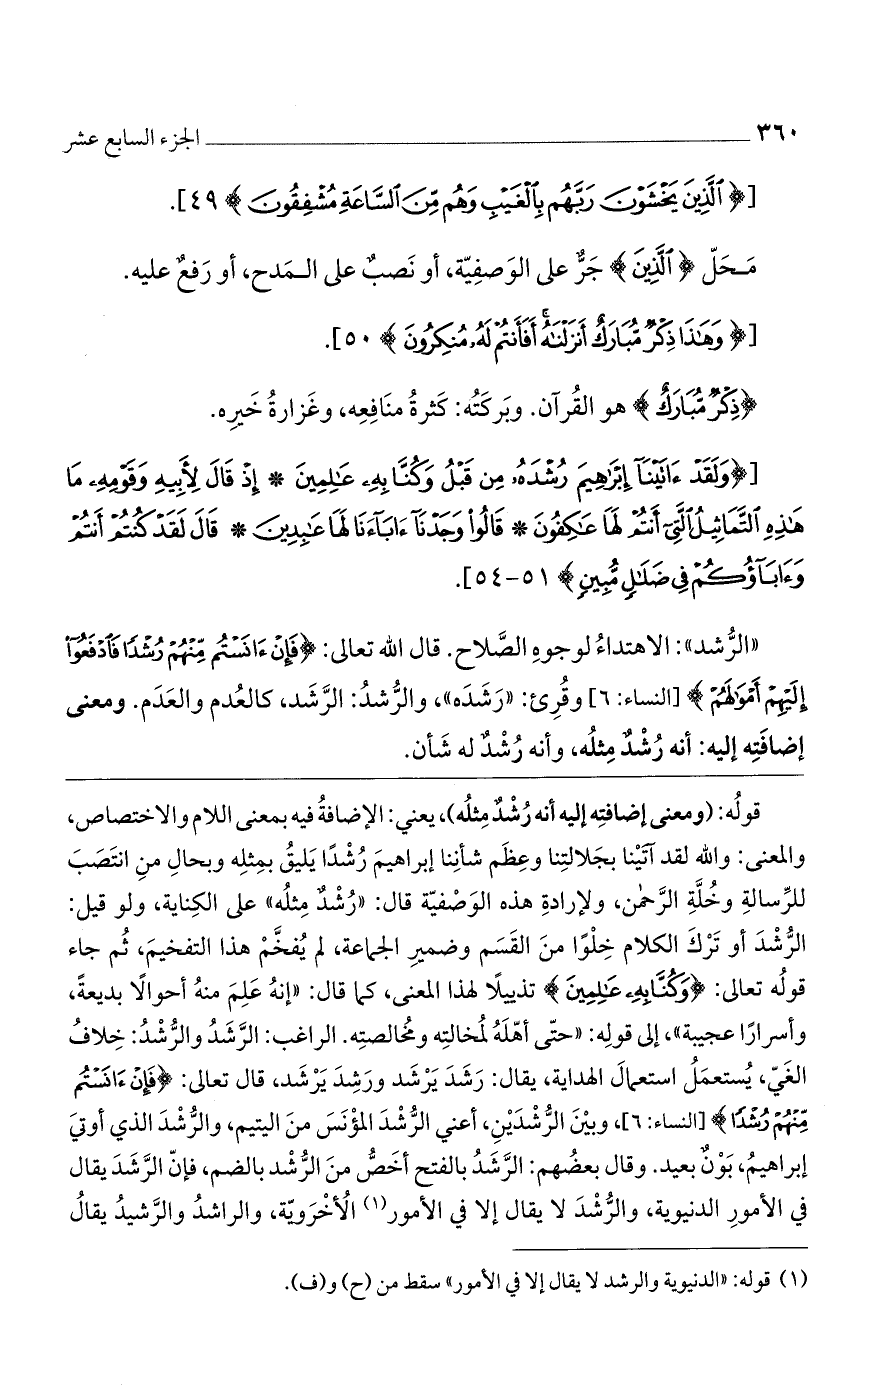 ٣٦٠ الجزء السابع عشر
[﴿ ٱلَّذِينَ يَخْشَوْنَ رَبَّهُم بِٱلْغَيْبِ وَهُم مِّنَ ٱلسَّاعَةِ مُشْفِقُونَ ﴾ ٤٩].
مَـحَلّ ﴿ ٱلَّذِينَ ﴾ جَرٌّ على الوَصفِيّة، أو نَصبٌ على الـمَدح، أو رَفعٌ عليه.
[﴿ وَهَٰذَا ذِكْرٌ مُّبَارَكٌ أَنزَلْنَٰهُ ۚ أَفَأَنتُمْ لَهُۥ مُنكِرُونَ ﴾ ٥٠].
﴿ذِكْرٌ مُّبَارَكٌ ﴾ هو القُرآن. وبَركَتُه: كَثرةُ منَافِعِه، وغَزارةُ خَيرِه.
[﴿وَلَقَدْ ءَاتَيْنَآ إِبْرَٰهِيمَ رُشْدَهُۥ مِن قَبْلُ وَكُنَّا بِهِۦ عَٰلِمِينَ * إِذْ قَالَ لِأَبِيهِ وَقَوْمِهِۦ مَا
هَٰذِهِ ٱلتَّمَاثِيلُ ٱلَّتِىٓ أَنتُمْ لَهَا عَٰكِفُونَ * قَالُوا۟ وَجَدْنَآ ءَابَآءَنَا لَهَا عَٰبِدِينَ * قَالَ لَقَدْ كُنتُمْ أَنتُمْ
وَءَابَآؤُكُمْ فِى ضَلَٰلٍ مُّبِينٍ﴾ ٥١-٥٤].
«الرُّشد»: الاهتداءُ لوجوهِ الصَّلاح. قال الله تعالى: ﴿فَإِنْ ءَانَسْتُم مِّنْهُمْ رُشْدًا فَٱدْفَعُوٓا۟
إِلَيْهِمْ أَمْوَٰلَهُمْ ﴾ [النساء: ٦] وقُرِئ: «رَشَدَه»، والرُّشدُ: الرَّشَد، كالعُدم والعَدَم. ومعنى
إضافَتِه إليه: أنه رُشْدٌ مِثلُه، وأنه رُشْدٌ له شَأن.
قولُه: (ومعنى إضافتِه إليه أنه رُشْدٌ مِثلُه)، يعني: الإضافةُ فيه بمعنى اللام والاختصاص،
والمعنى: والله لقد آتَيْنا بجَلالتِنا وعِظَم شأنِنا إبراهيمَ رُشْدًا يَليقُ بمِثلِه وبحالِ منِ انتَصَبَ
للرِّسالةِ وخُلَّةِ الرَّحمٰن، ولإرادةِ هذه الوَصْفيّة قال: «رُشْدٌ مِثلُه» على الكِناية، ولو قيل:
الرُّشْدَ أو تَرْكَ الكلام خِلْوًا منَ القَسَم وضميرِ الجماعة، لم يُفخَّمْ هذا التفخيمَ، ثُم جاء
قولُه تعالى: ﴿وَكُنَّا بِهِۦ عَٰلِمِينَ ﴾ تذييلًا لهذا المعنى، كما قال: «إنهُ عَلِمَ منهُ أحوالًا بديعةً،
وأسرارًا عجيبة»، إلى قولِه: «حتّى أهّلَهُ لمُخالّتِه ومُخالصتِه. الراغب: الرَّشَدُ والرُّشْدُ: خِلافُ
الغَيّ، يُستعمَلُ استعمالَ الهداية، يقال: رَشَدَ يَرْشُد ورَشِدَ يَرْشَد، قال تعالى: ﴿فَإِنْ ءَانَسْتُم
مِّنْهُمْ رُشْدًا ﴾ [النساء: ٦]، وبيْنَ الرُّشْدَيْنِ، أعني الرُّشْدَ المؤْنَسَ منَ اليتيم، والرُّشْدَ الذي أوتيَ
إبراهيمُ، بَوْنٌ بعيد. وقال بعضُهم: الرَّشَدُ بالفتح أخَصُّ منَ الرُّشْد بالضم، فإنّ الرَّشَدَ يقال
في الأمورِ الدنيوية، والرُّشْدَ لا يقال إلا في الأمور(١) الأُخْرَويّة، والراشدُ والرَّشيدُ يقالُ
(١) قوله: «الدنيوية والرشد لا يقال إلا في الأمور» سقط من (ح) و(ف).